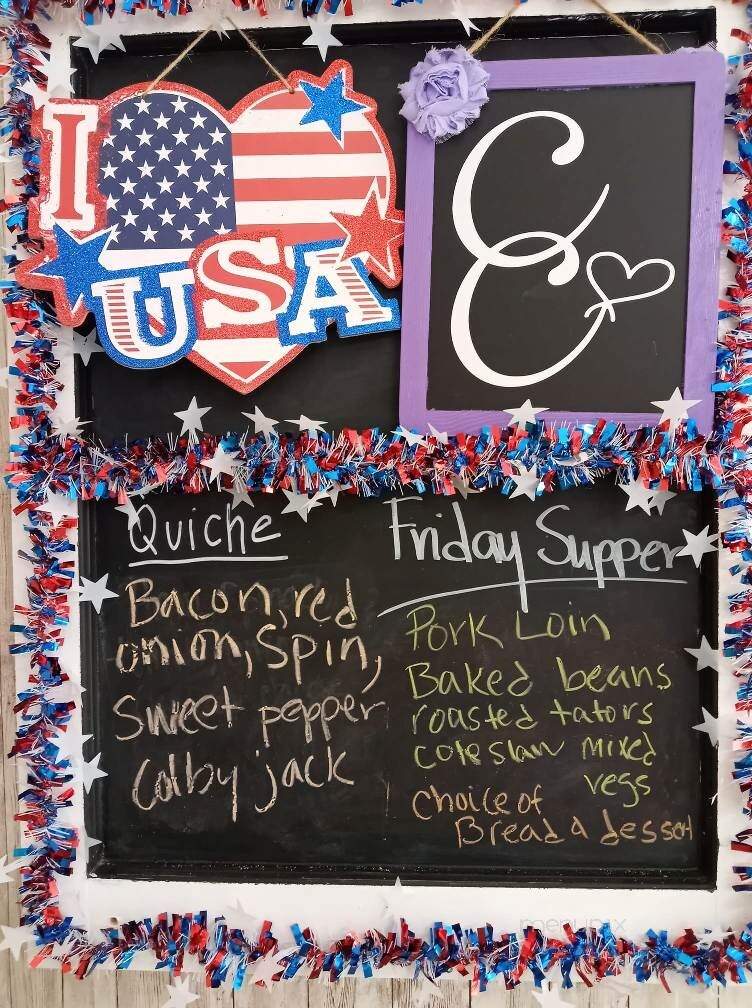 I
USA
E
Quiche
Bacon, red
onion, Spin,
Sweet pepper
Colby jack
Friday Supper
Pork Loin
Baked beans
roasted tators
coleslaw mixed
vegs
Choice of
Bread a dessert
menupix